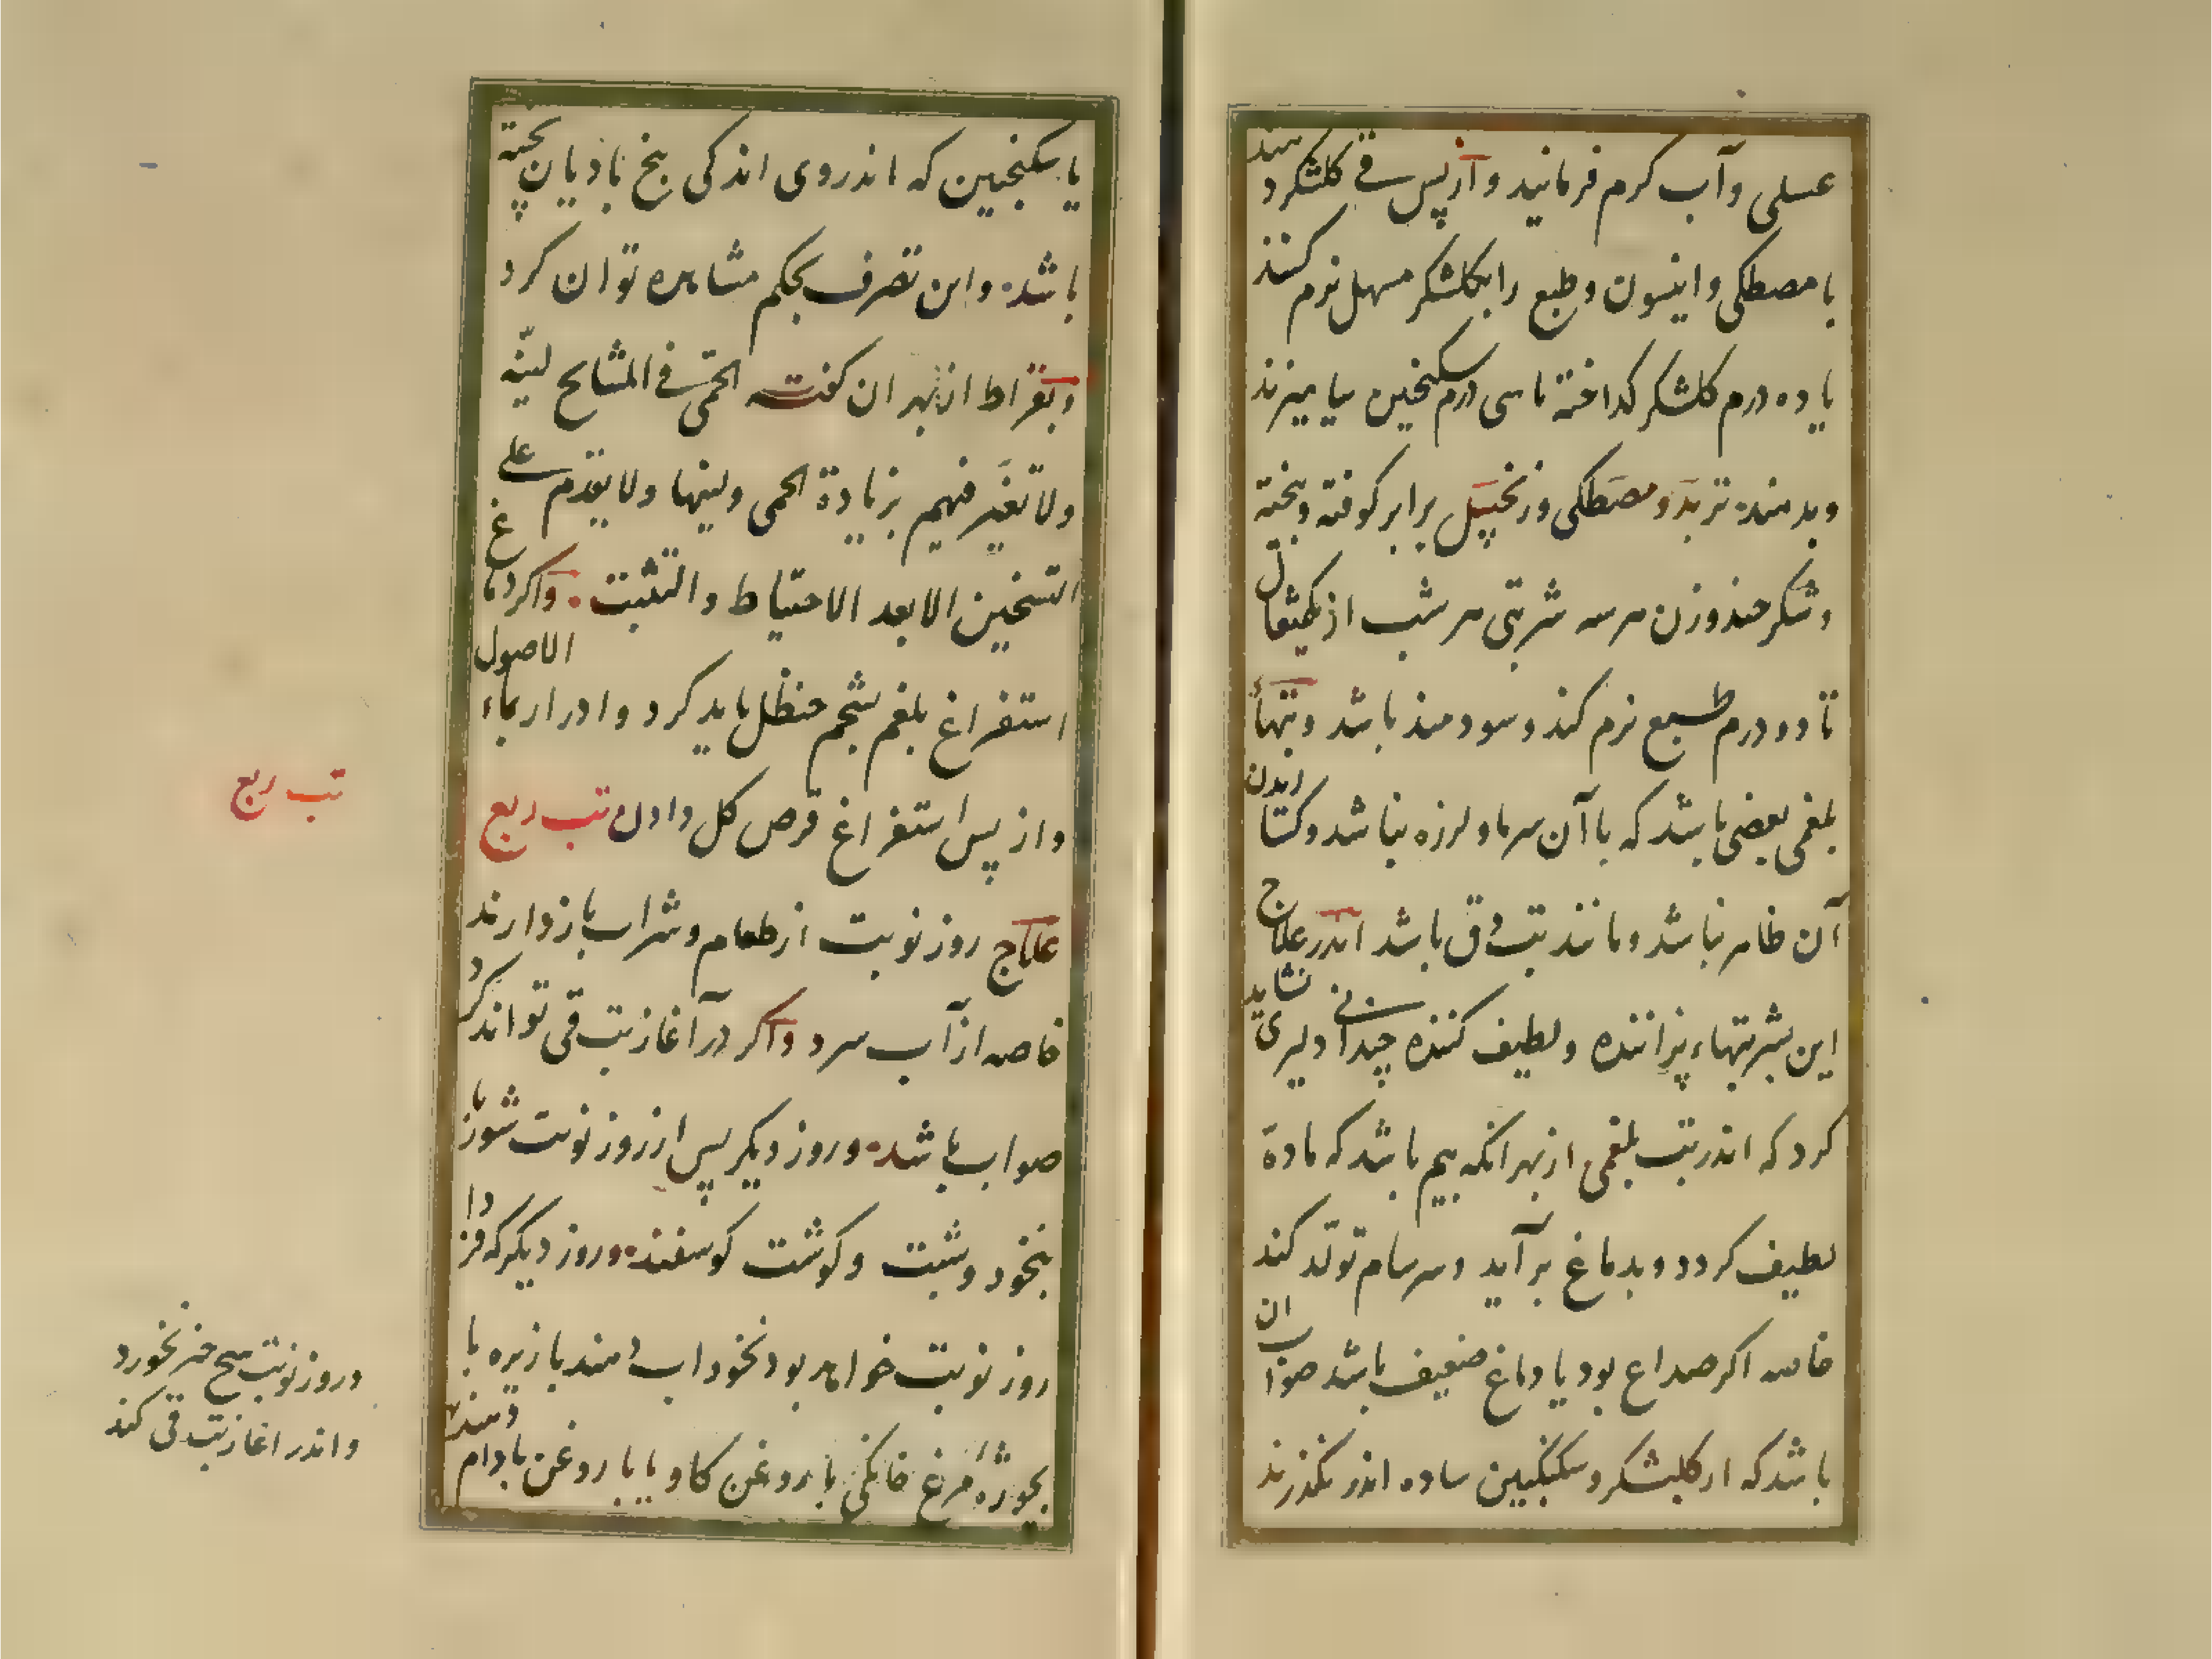 عسلی و آب کرم فرمانید و از پس قی کلشکر دهند
با مصطکی و انیسون و طبع را بکلشکر مسهل نرم کنند
یا ده درم کلشکر کداخته با سی درم سکنجبین بیامیزند
و بدهند و تربد و مصطکی و زنجبیل برابر کوفته و بیخته
و شکر چند وزن هر سه شربتی هر شب از یکمثقال
تا دو درم طبیع نرم کند و سودمند باشد و تبهاء
بلغمی بعضی باشد که با آن سرما و لرزه نباشد و کشاریدن
آن ظاهر نباشد و مانند تب دق باشد اندر علاج
این بشربتهاء پزاننده و لطیف کننده چندانی دلیری نشاید
کرد که اندر تب بلغمی از بهر انکه بیم باشد که مادة
لطیف کردد و بدماغ بر آید و سرسام تولّد کند
خاصه اکر صداع بود یا دماغ ضعیف باشد صواب ان
باشد که از کلشکر و سکنکبین ساده اندر نکذرند
یا سکنجبین که اندر وی اندکی بیخ بادیان پخته
باشد و این تصرف بحکم مشاهره توان کرد
و بقراط از بهر ان کفت الحمّی فی المشایخ لینّه
ولا تغیر فیهم بزیادة الحمی ولینها ولا یقدم علی
التسخین الا بعد الاحتیاط والتثبت و اکر دماغ
استفراغ بلغم بشحم حنظل باید کرد و ادرار بماء الاصول
و از پس استفراغ قرص کل دادن تب ربع
علاج روز نوبت از طعام و شراب باز دارند
خاصه از آب سرد و اکر در آغاز تب قی تواند کرد
صواب باشد و روز دیکر پس از روز نوبت شوربا
بنخود و شبت و کوشت کوسفند و روز دیکر که فردا
روز نوبت خواهد بود نخوداب دهند با زیره یا
بجوزهٔ مرغ خانکی با روغن کاو یا با روغن بادام دهند
تب ربع
در روز نوبت هیچ چیز نخورد
و اندر اغاز تب قی کند